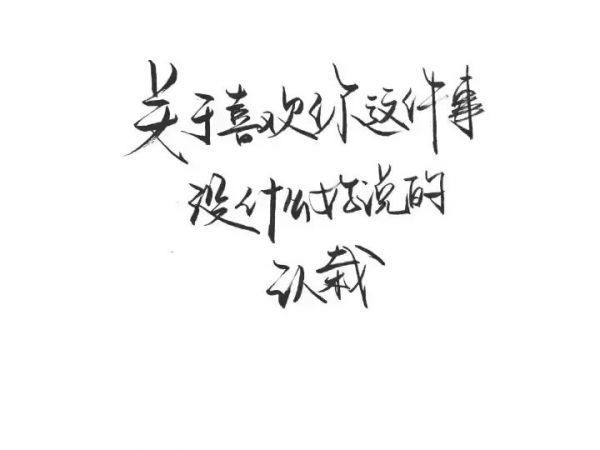 关于喜欢你这件事
没什么好说的
认栽